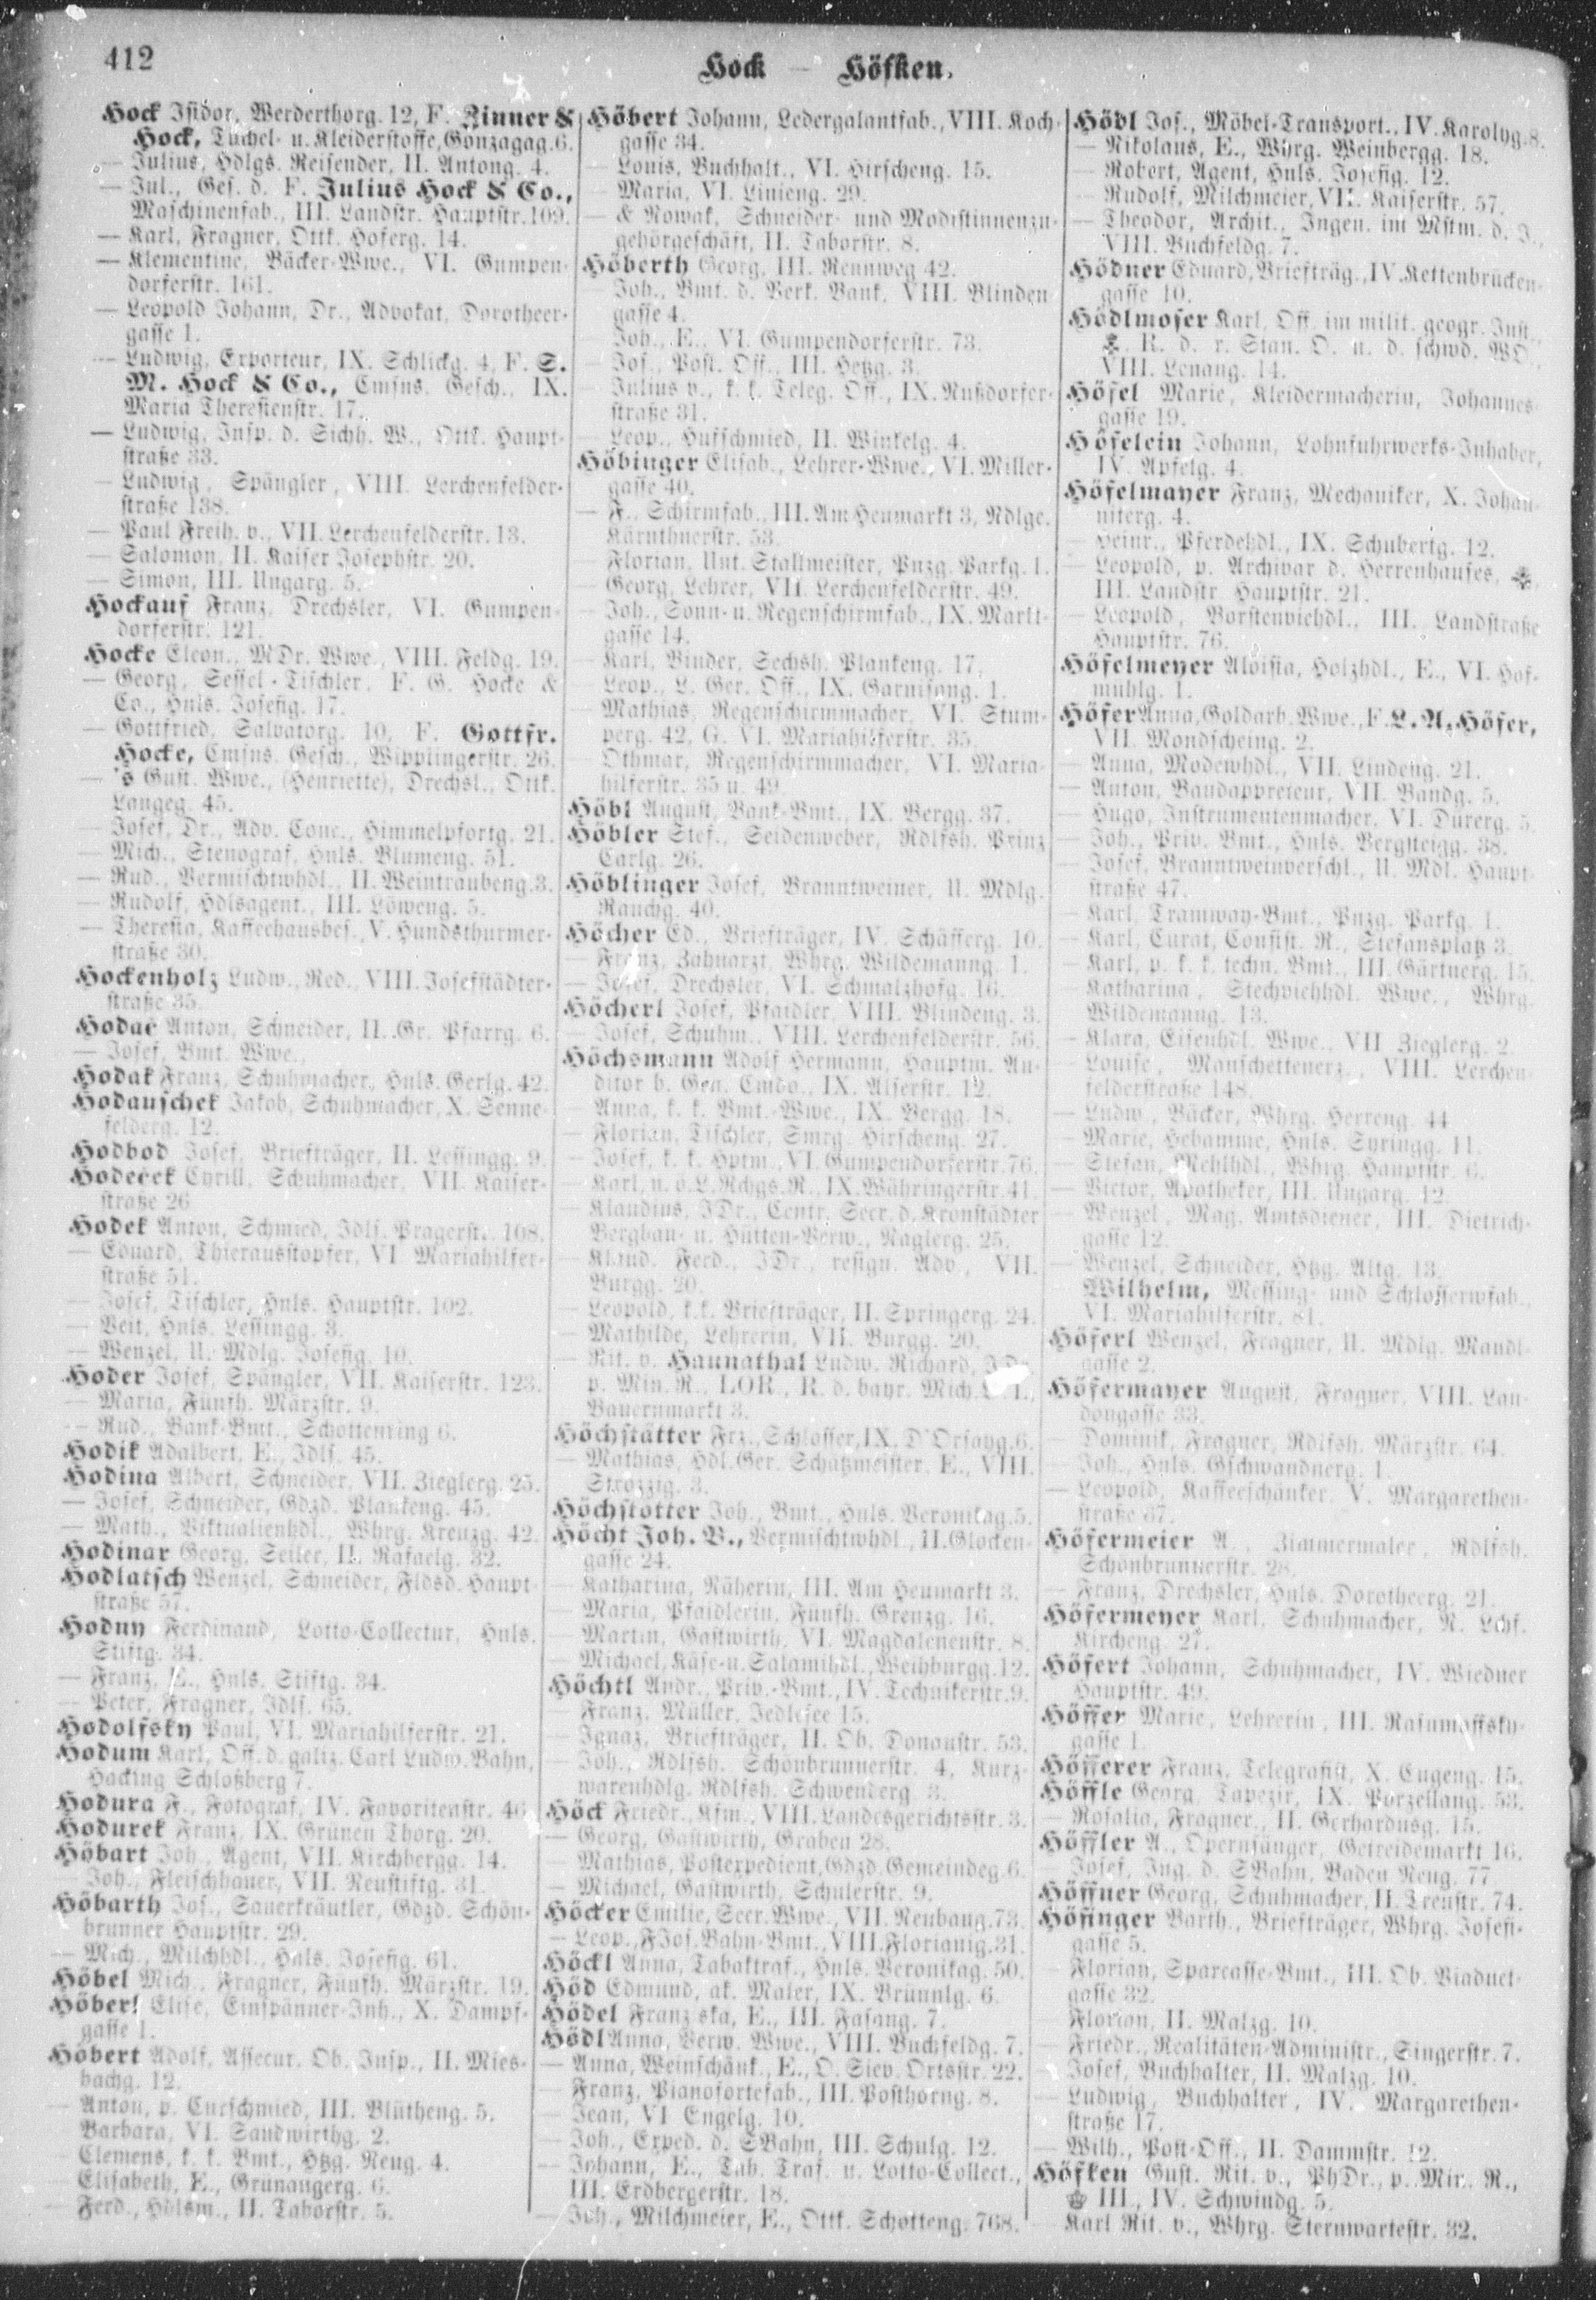 412
Hock — Höfken.
Hock Isidor, Werderthorg. 12, F. Zinner &
Hock, Tüchel- u. Kleiderstoffe, Gonzagag. 6.
— Julius, Hdlgs. Reisender, II. Antong. 4.
— Jul., Ges. d. F. Julius Hock & Co.,
Maschinenfab., III. Landstr. Hauptstr. 109.
— Karl, Fragner, Ottk. Hoferg. 14.
— Klementine, Bäcker-Wwe., VI. Gumpen-
dorferstr. 161.
— Leopold Johann, Dr., Advokat, Dorotheer-
gasse 1.
— Ludwig, Exporteur, IX. Schlickg. 4, F. S.
M. Hock & Co., Cmsns. Gesch., IX.
Maria Theresienstr. 17.
— Ludwig, Insp. d. Sichh. W., Ottk. Haupt-
straße 33.
— Ludwig, Spängler, VIII. Lerchenfelder-
straße 138.
— Paul Freih. v., VII. Lerchenfelderstr. 13.
— Salomon, II. Kaiser Josephstr. 20.
— Simon, III. Ungarg. 5.
Hockauf Franz, Drechsler, VI. Gumpen-
dorferstr. 121.
Hocke Eleon., MDr. Wwe., VIII. Feldg. 19.
— Georg, Sessel-Tischler, F. G. Hocke &
Co., Hnls. Josefig. 17.
— Gottfried, Salvatorg. 10, F. Gottfr.
Hocke, Cmsns. Gesch., Wipplingerstr. 26.
— 's Gust. Wwe., (Henriette), Drechsl., Ottk.
Langeg. 45.
— Josef, Dr., Adv. Conc., Himmelpfortg. 21.
— Mich., Stenograf, Hnls. Blumeng. 51.
— Rud., Vermischtwhdl., II. Weintraubeng. 3.
— Rudolf, Hdlsagent., III. Löweng. 5.
— Theresia, Kaffeehausbes., V. Hundsthurmer-
straße 30.
Hockenholz Ludw., Red., VIII. Josefstädter-
straße 35.
Hodac Anton, Schneider, II. Gr. Pfarrg. 6.
— Josef, Bmt. Wwe.,
Hodak Franz, Schuhmacher, Hnls. Gerlg. 42.
Hodauschek Jakob, Schuhmacher, X. Senne-
felderg. 12.
Hodbod Josef, Briefträger, II. Lessingg. 9.
Hoderek Cyrill, Schuhmacher, VII. Kaiser-
straße 26.
Hodek Anton, Schmied, Jdls. Pragerst. 108.
— Eduard, Thierausstopfer, VI. Mariahilfer-
straße 51.
— Josef, Tischler, Hnls. Hauptstr. 102.
— Veit, Hnls. Lessingg. 3.
— Wenzel, U. Mdlg. Josefig. 10.
Hoder Josef, Spängler, VII. Kaiserstr. 123.
— Maria, Fünfh. Märzstr. 9.
— Rud., Bank-Bmt., Schottenring 6.
Hodik Adalbert, E., Jdls. 45.
Hodina Albert, Schneider, VII. Zieglerg. 25.
— Josef, Schneider, Gdzd. Plankeng. 45.
— Math., Viktualienhdl., Whrg. Kreuzg. 42.
Hodinar Georg, Seiler, II. Rafaelg. 32.
Hodlatsch Wenzel, Schneider, Fldsd. Haupt-
straße 57.
Hodny Ferdinand, Lotto-Collectur, Hnls.
Stiftg. 34.
— Franz, E., Hnls. Stiftg. 34.
— Peter, Fragner, Jdls. 65.
Hodolfsky Paul, VI. Mariahilferstr. 21.
Hodum Karl, Off. d. galiz. Carl Ludw. Bahn,
Hacking Schloßberg 7.
Hodura F., Fotograf, IV. Favoritenstr. 46.
Hodurek Franz, IX. Grünen Thorg. 20.
Höbart Joh., Agent, VII. Kirchbergg. 14.
— Joh., Fleischhauer, VII. Neustiftg. 31.
Höbarth Jos., Sauerkräutler, Gdzd. Schön-
brunner Hauptstr. 29.
— Mich., Milchhdl., Hnls. Josefig. 61.
Höbel Mich., Fragner, Fünfh. Märzstr. 19.
Höberl Elise, Einspänner-Inh., X. Dampf-
gasse 1.
Höbert Adolf, Assecur. Ob. Insp., II. Mies-
bachg. 12.
— Anton, p. Curschmied, III. Blütheng. 5.
Barbara, VI. Sandwirthg. 2.
Clemens, k. k. Bmt., Htzg. Neug. 4.
— Elisabeth, E., Grünangerg. 6.
— Ferd., Hdlsm., II. Taborstr. 5.
Höbert Johann, Ledergalantfab., VIII. Koch-
gasse 34.
— Louis, Buchhalt., VI. Hirscheng. 15.
— Maria, VI. Linieng. 29.
— & Nowak, Schneider- und Modistinnenzu-
gehörgeschäft, II. Taborstr. 8.
Höberth Georg, III. Rennweg 42.
Joh., Bmt. d. Verk. Bank, VIII. Blinden-
gasse 4.
Joh., E., VI. Gumpendorferstr. 73.
— Jos., Post. Off., III. Hetzg. 3.
— Julius v., k. k. Teleg. Off., IX. Nußdorfer-
straße 31.
— Leop., Hufschmied, II. Winkelg. 4.
Höbinger Elisab., Lehrer-Wwe., VI. Miller-
gasse 40.
— F., Schirmfab., III. Am Heumarkt 3, Ndlge.
Kärnthnerstr. 53.
Florian, Unt. Stallmeister, Pnzg. Parkg. 1.
— Georg, Lehrer, VII. Lerchenfelderstr. 49.
— Joh., Sonn- u. Regenschirmfab., IX. Marlt-
gasse 14.
— Karl, Binder, Sechsh. Plankeng. 17.
— Leop., L. Ger. Off., IX. Garnisong. 1.
— Mathias, Regenschirmmacher, VI. Stum-
perg. 42, G. VI. Mariahilferstr. 35.
— Othmar, Regenschirmmacher, VI. Maria-
hilferstr. 35 u. 49.
Höbl August, Bank-Bmt., IX. Bergg. 37.
Höbler Stef., Seidenweber, Rdlfsh. Prinz
Carlg. 26.
Höblinger Josef, Branntweiner, U. Mdlg.
Rauchg. 40.
Höcher Ed., Briefträger, IV. Schäfferg. 10.
— Franz, Zahnarzt, Whrg. Wildemanng. 1.
— Josef, Drechsler, VI. Schmalzhofg. 16.
Höcherl Josef, Pfaidler, VIII. Blindeng. 3.
— Josef, Schuhm., VIII. Lerchenfelderstr. 56.
Höchsmann Adolf Hermann, Hauptm. Au-
ditor b. Gen. Cmdo., IX. Alserstr. 12.
— Anna, k. k. Bmt.-Wwe., IX. Bergg. 18.
— Florian, Tischler, Smrg. Hirscheng. 27.
— Josef, k. k. Hptm., VI. Gumpendorferstr. 76.
— Karl, n. ö. L. Rchgs. R., IX. Währingerstr. 41.
— Klaudius, JDr., Centr. Secr. d. Kronstädter
Bergbau- u. Hütten-Verw., Naglerg. 25.
— Klaud. Ferd., JDr., resign. Adv., VII.
Burgg. 20.
— Leopold, k.k. Briefträger, II. Springerg. 24.
— Mathilde, Lehrerin, VII. Burgg. 20.
— Rit. v. Haunathal Ludw. Richard,
p. Min. R., LOR., R. d. bayr. Mich.
Bauernmarkt 3.
Höchstätter Frz., Schlosser, IX. D'Orsayg. 6.
— Mathias, Hdl. Ger. Schätzmeister, E., VIII.
Strozzig. 3.
Höchstötter Joh., Bmt., Hnls. Veronikag. 5.
Höcht Joh. B., Vermischtwhdl., II. Glocken-
gasse 24.
— Katharina, Näherin, III. Am Heumarkt 3.
— Maria, Pfaidlerin, Fünfh. Grenzg. 16.
— Martin, Gastwirth, VI. Magdalenenstr. 8.
— Michael, Käse- u. Salamihdl., Weihburgg. 12.
Höchtl Andr., Priv.-Bmt., IV. Technikerstr. 9.
— Franz, Müller, Jedlesee 15.
— Ignaz, Briefträger, II. Ob. Donaustr. 53.
— Joh., Rdlfsh. Schönbrunnerstr. 4, Kurz-
warenhdlg. Rdlfsh. Schwenderg. 3.
Höck Friedr., Kfm., VIII. Landesgerichtsstr. 3.
— Georg, Gastwirth, Graben 28.
— Mathias, Postexpedient, Gdzd. Gemeindeg. 6.
— Michael, Gastwirth, Schulerstr. 9.
Höcker Emilie, Secr. Wwe., VII. Neubaug. 73.
— Leop., FJos. Bahn-Bmt., VIII. Florianig. 31.
Höckl Anna, Tabaktraf., Hnls. Veronikag. 50.
Höd Edmund, ak. Maler, IX. Brünnlg. 6.
Hödel Franziska, E., III. Fasang. 7.
Hödl Anna, Verw. Wwe., VIII. Buchfeldg. 7.
— Anna, Weinschänk., E., O. Siev. Ortsstr. 22.
— Franz, Pianofortefab., III. Posthorng. 8.
— Jean, VI Engelg. 10.
— Joh., Exped. d. SBahn, III. Schulg. 12.
— Johann, E., Tab. Traf. u. Lotto-Collect.,
III. Erdbergerstr. 18.
— Joh., Milchmeier, E., Ottk. Schotteng. 768.
Hödl Jos., Möbel-Transport., IV. Karolyg. 8.
— Nikolaus, E., Whrg. Weinbergg. 18.
— Robert, Agent, Hnls. Josefig. 12.
— Rudolf, Milchmeier, VII. Kaiserstr. 57.
— Theodor, Archit., Ingen. im Mstm. d. J.,
VIII. Buchfeldg. 7.
Hödner Eduard, Briefträg., IV. Kettenbrücken-
gasse 10.
Hödlmoser Karl, Off. im milit. geogr. Inst.,
R. d. r. Stan. O. u. d. schwd. WO.,
VIII. Lenaug. 14.
Höfel Marie, Kleidermacherin, Johannes-
gasse 19.
Höfelein Johann, Lohnfuhrwerks-Inhaber,
IV. Apfelg. 4.
Höfelmayer Franz, Mechaniker, X. Johan-
niterg. 4.
— Heinr., Pferdehdl., IX. Schubertg. 12.
— Leopold, p. Archivar d. Herrenhauses,
III. Landstr. Hauptstr. 21.
— Leopold, Borstenviehdl., III. Landstraße
Hauptstr. 76.
Höfelmeyer Aloisia, Holzhdl., E., VI. Hof-
mühlg. 1.
Höfer Anna, Goldarb. Wwe., F. L. A. Höfer,
VII. Mondscheing. 2.
— Anna, Modewhdl., VII. Lindeng. 21.
— Anton, Bandappreteur, VII. Bandg. 5.
— Hugo, Instrumentenmacher, VI. Dürerg. 5.
— Joh., Priv. Bmt., Hnls. Bergsteigg. 38.
— Josef, Branntweinverschl., U. Mdl. Haupt-
straße 47.
— Karl, Tramway-Bmt., Pnzg. Parkg. 1.
— Karl, Curat, Consist. R., Stefansplatz 3.
— Karl, p. k. k. techn. Bmt., III. Gärtnerg. 15.
— Katharina, Stechviehhdl. Wwe., Whrg.
Wildemanng. 13.
— Klara, Eisenhdl. Wwe., VII Zieglerg. 2.
— Louise, Manschettenerz., VIII. Lerchen-
felderstraße 148.
— Ludw., Bäcker, Whrg. Herreng. 44
— Marie, Hebamme, Hnls. Syringg. 11.
— Stefan, Mehlhdl., Whrg. Hauptstr. 6.
— Victor, Apotheker, III. Ungarg. 12.
— Wenzel, Mag. Amtsdiener, III. Dietrich-
gasse 12.
— Wenzel, Schneider, Htzg. Altg. 13.
Wilhelm, Messing- und Schlosserwfab.,
VI. Mariahilferstr. 81.
Höferl Wenzel, Fragner, U. Mdlg. Mandl-
gasse 2.
Höfermayer August, Fragner, VIII. Lau-
dongasse 33.
— Dominik, Fragner, Rdlfsh. Märzstr. 64.
— Joh., Hnls. Gschwandnerg. 1.
— Leopold, Kaffeeschänker, V. Margarethen-
straße 87.
Höfermeier A., Zimmermaler, Rdlfsh.
Schönbrunnerstr. 28.
— Franz, Drechsler, Hnls. Dorotheerg. 21.
Höfermeyer Karl, Schuhmacher, N. Lchf.
Kircheng. 27.
Höfert Johann, Schuhmacher, IV. Wiedner
Hauptstr. 49.
Höffer Marie, Lehrerin, III. Rasumoffsky-
gasse 1.
Höfferer Franz, Telegrafist, X. Eugeng. 15.
Höffle Georg, Tapezir, IX. Porzellang. 53.
— Rosalia, Fragner., II. Gerhardusg. 15.
Höffler A., Opernsänger, Getreidemarkt 16.
— Josef, Ing. d. SBahn, Baden Neug. 77
Höffner Georg, Schuhmacher, II. Treustr. 74.
Höfinger Barth., Briefträger, Whrg. Josefi-
gasse 5.
Florian, Sparcasse-Bmt., III. Ob. Viaduct-
gasse 32.
Florian, II. Malzg. 10.
— Friedr., Realitäten-Administr., Singerstr. 7.
— Josef, Buchhalter, II. Malzg. 10.
— Ludwig, Buchhalter, IV. Margarethen-
straße 17.
— Wilh., Post-Off., II. Dammstr. 12.
Höfken Gust. Rit. v., PhDr., p. Min. R.,
III., IV. Schwindg. 5.
Karl Rit. v., Whrg. Sternwartestr. 32.